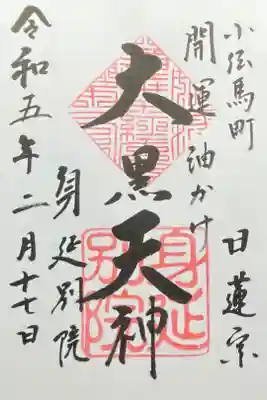 小伝馬町
日蓮宗
開運油かけ
大黒天神
身延
別院
身延別院
令和五年二月十七日